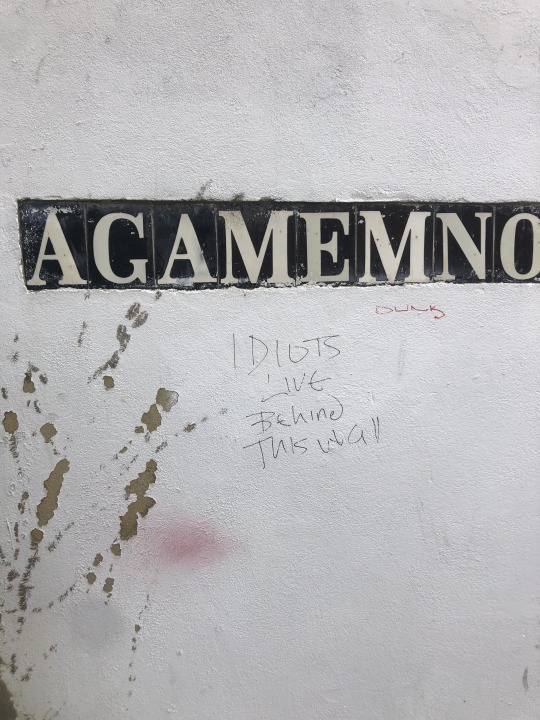 AGAMEMNO
IDIOTS
LIVE
BEHinD
THIS WAll